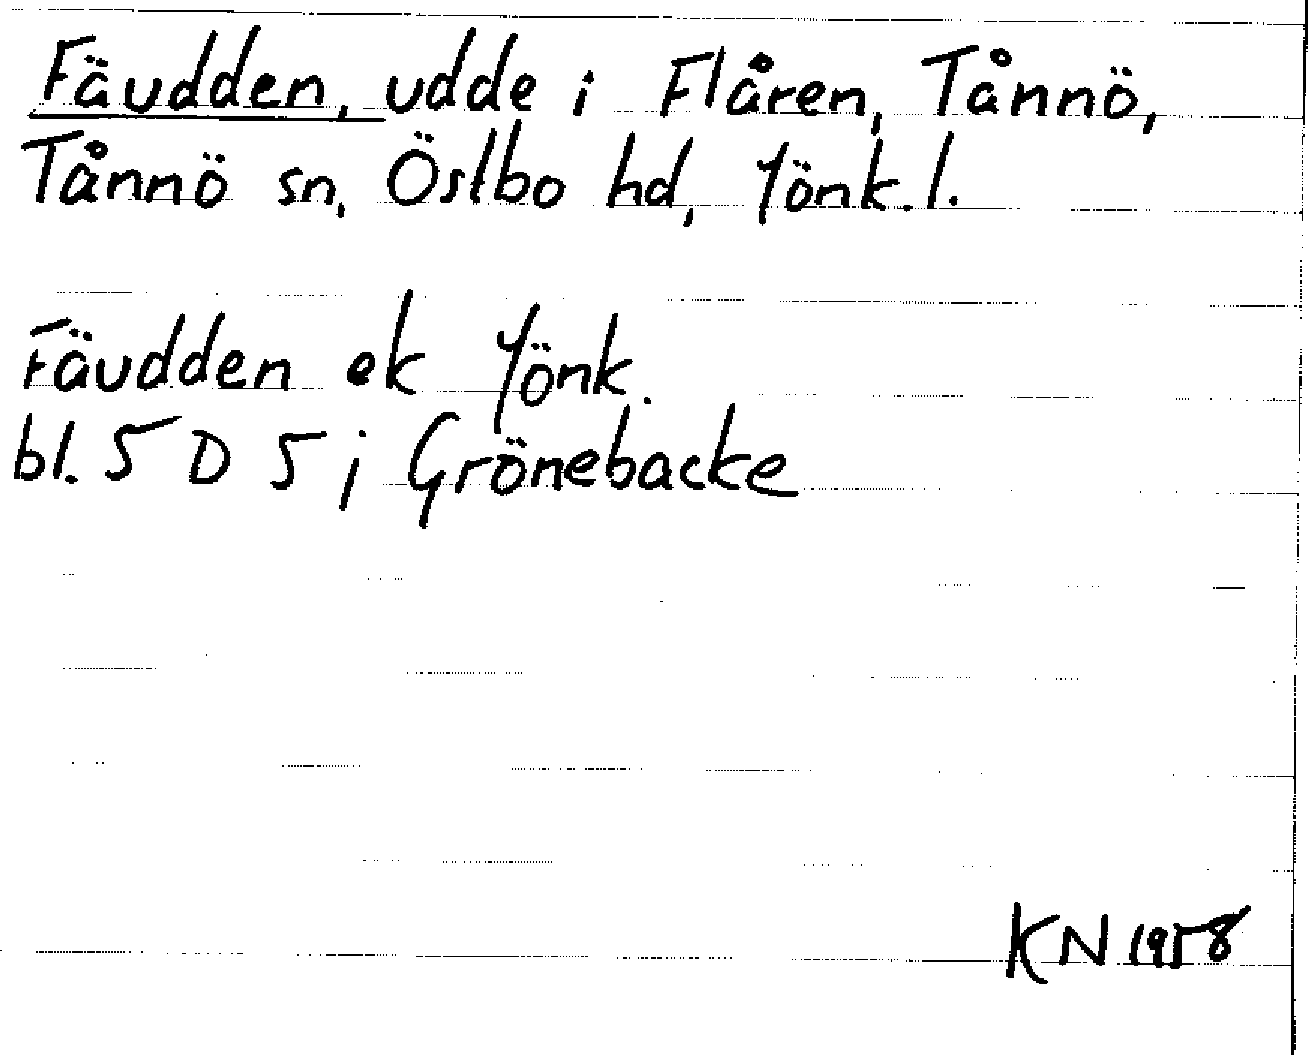 Fäudden, udde i Flåren, Tånnö,
Tånnö sn, Östbo hd, Jönk.l.
Fäudden ek Jönk.
bl. 5 D 5 j Grönebacke
KN 1958